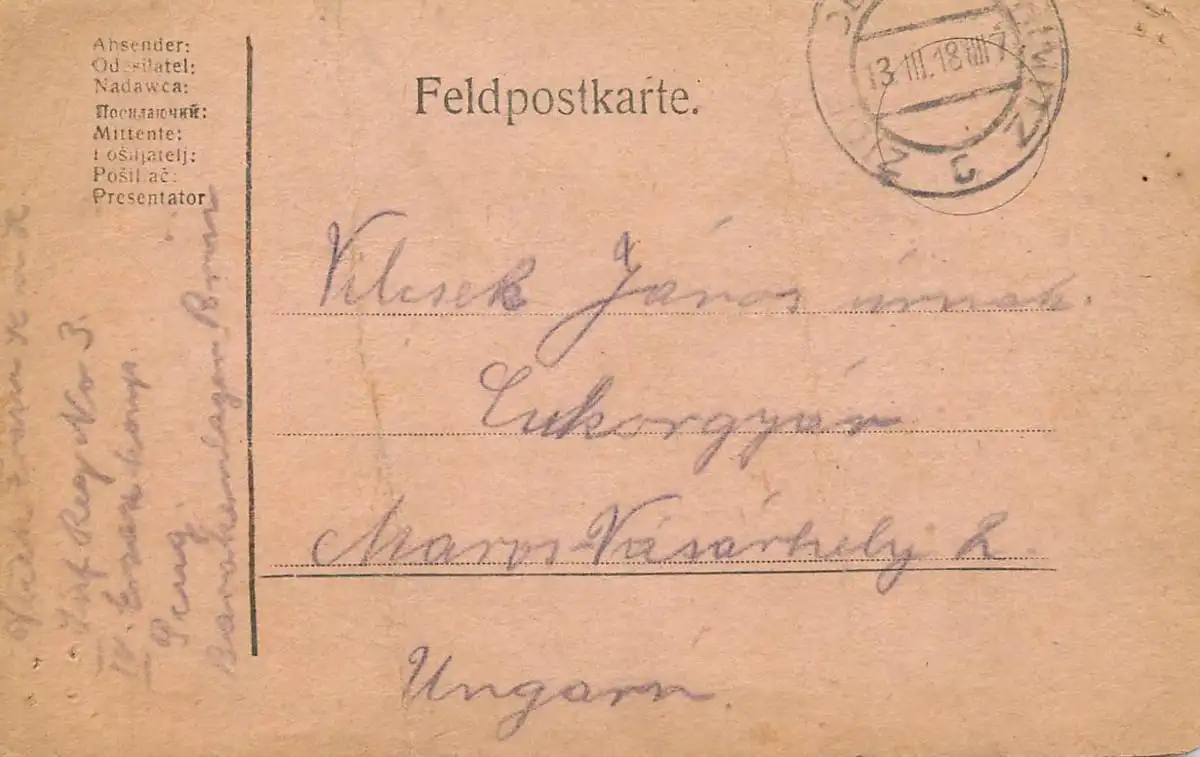 Absender:
Odesílatel:
Nadawca:
Посилаючий:
Mittente:
Pošiljatelj:
Pošiljač:
Presentator
Feldpostkarte.
13.III.18
Vilcsek János úrnak.
Cukorgyár
Maros-Vásárhely 2.
Ungarn.
Inf. Reg. No 3.
IV. Ersatz komp.
Barakenlager